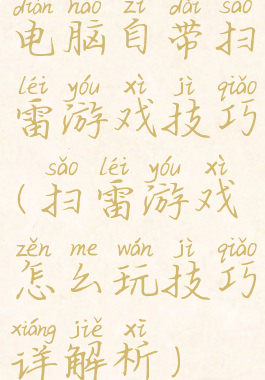 diàn nǎo zì dài sǎo
电脑自带扫
léi yóu xì jì qiǎo
雷游戏技巧
sǎo léi yóu xì
(扫雷游戏
zěn me wán jì qiǎo
怎么玩技巧
xiáng jiě xī
详解析)